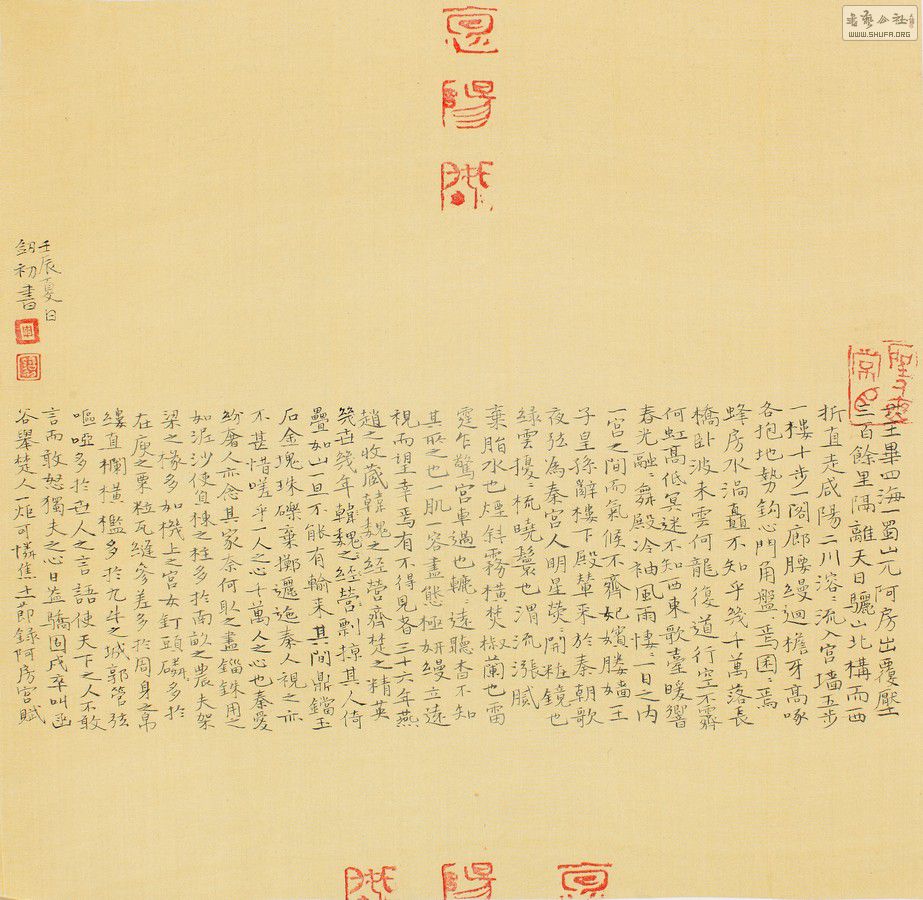 王畢四海一蜀山兀阿房出覆壓
三百餘里隔離天日驪山北構而西
折直走咸陽二川溶〻流入宮墻五步
一樓十步一閣廊腰縵迴檐牙高啄
各抱地勢鈎心鬥角盤〻焉囷〻焉
蜂房水渦矗不知乎幾千萬落長
橋臥波未雲何龍復道行空不霽
何虹高低冥迷不知西東歌臺暖響
春光融〻舞殿冷袖風雨悽〻一日之內
一宮之間而氣候不齊妃嬪媵嬙王
子皇孫辭樓下殿輦來於秦朝歌
夜弦為秦宮人明星熒〻開粧鏡也
綠雲擾〻梳曉鬟也渭流漲膩
棄脂水也煙斜霧橫焚椒蘭也雷
霆乍驚宮車過也轆〻遠聽杳不知
其所之也一肌一容盡態極妍縵立遠
視而望幸焉有不得見者三十六年燕
趙之收藏韓魏之經營齊楚之精英
幾世幾年韓魏之經營剽掠其人倚
疊如山旦不能有輸來其間鼎鐺玉
石金塊珠礫棄擲邐迤秦人視之亦
不甚惜嗟乎一人之心十萬人之心也秦愛
紛奢人亦念其家奈何取之盡錙銖用之
如泥沙使負棟之柱多於南畝之農夫架
梁之椽多如機上之宮女釘頭磷〻多於
在庾之粟粒瓦縫參差多於周身之帛
縷直欄橫檻多於九牛之城郭管弦
嘔啞多於世人之言語使天下之人不敢
言而敢怒獨夫之心日益驕固戍卒叫函
谷舉楚人一炬可憐焦土節錄阿房宮賦
壬辰夏日
劒初書
書藝公社
WWW.SHUFA.ORG